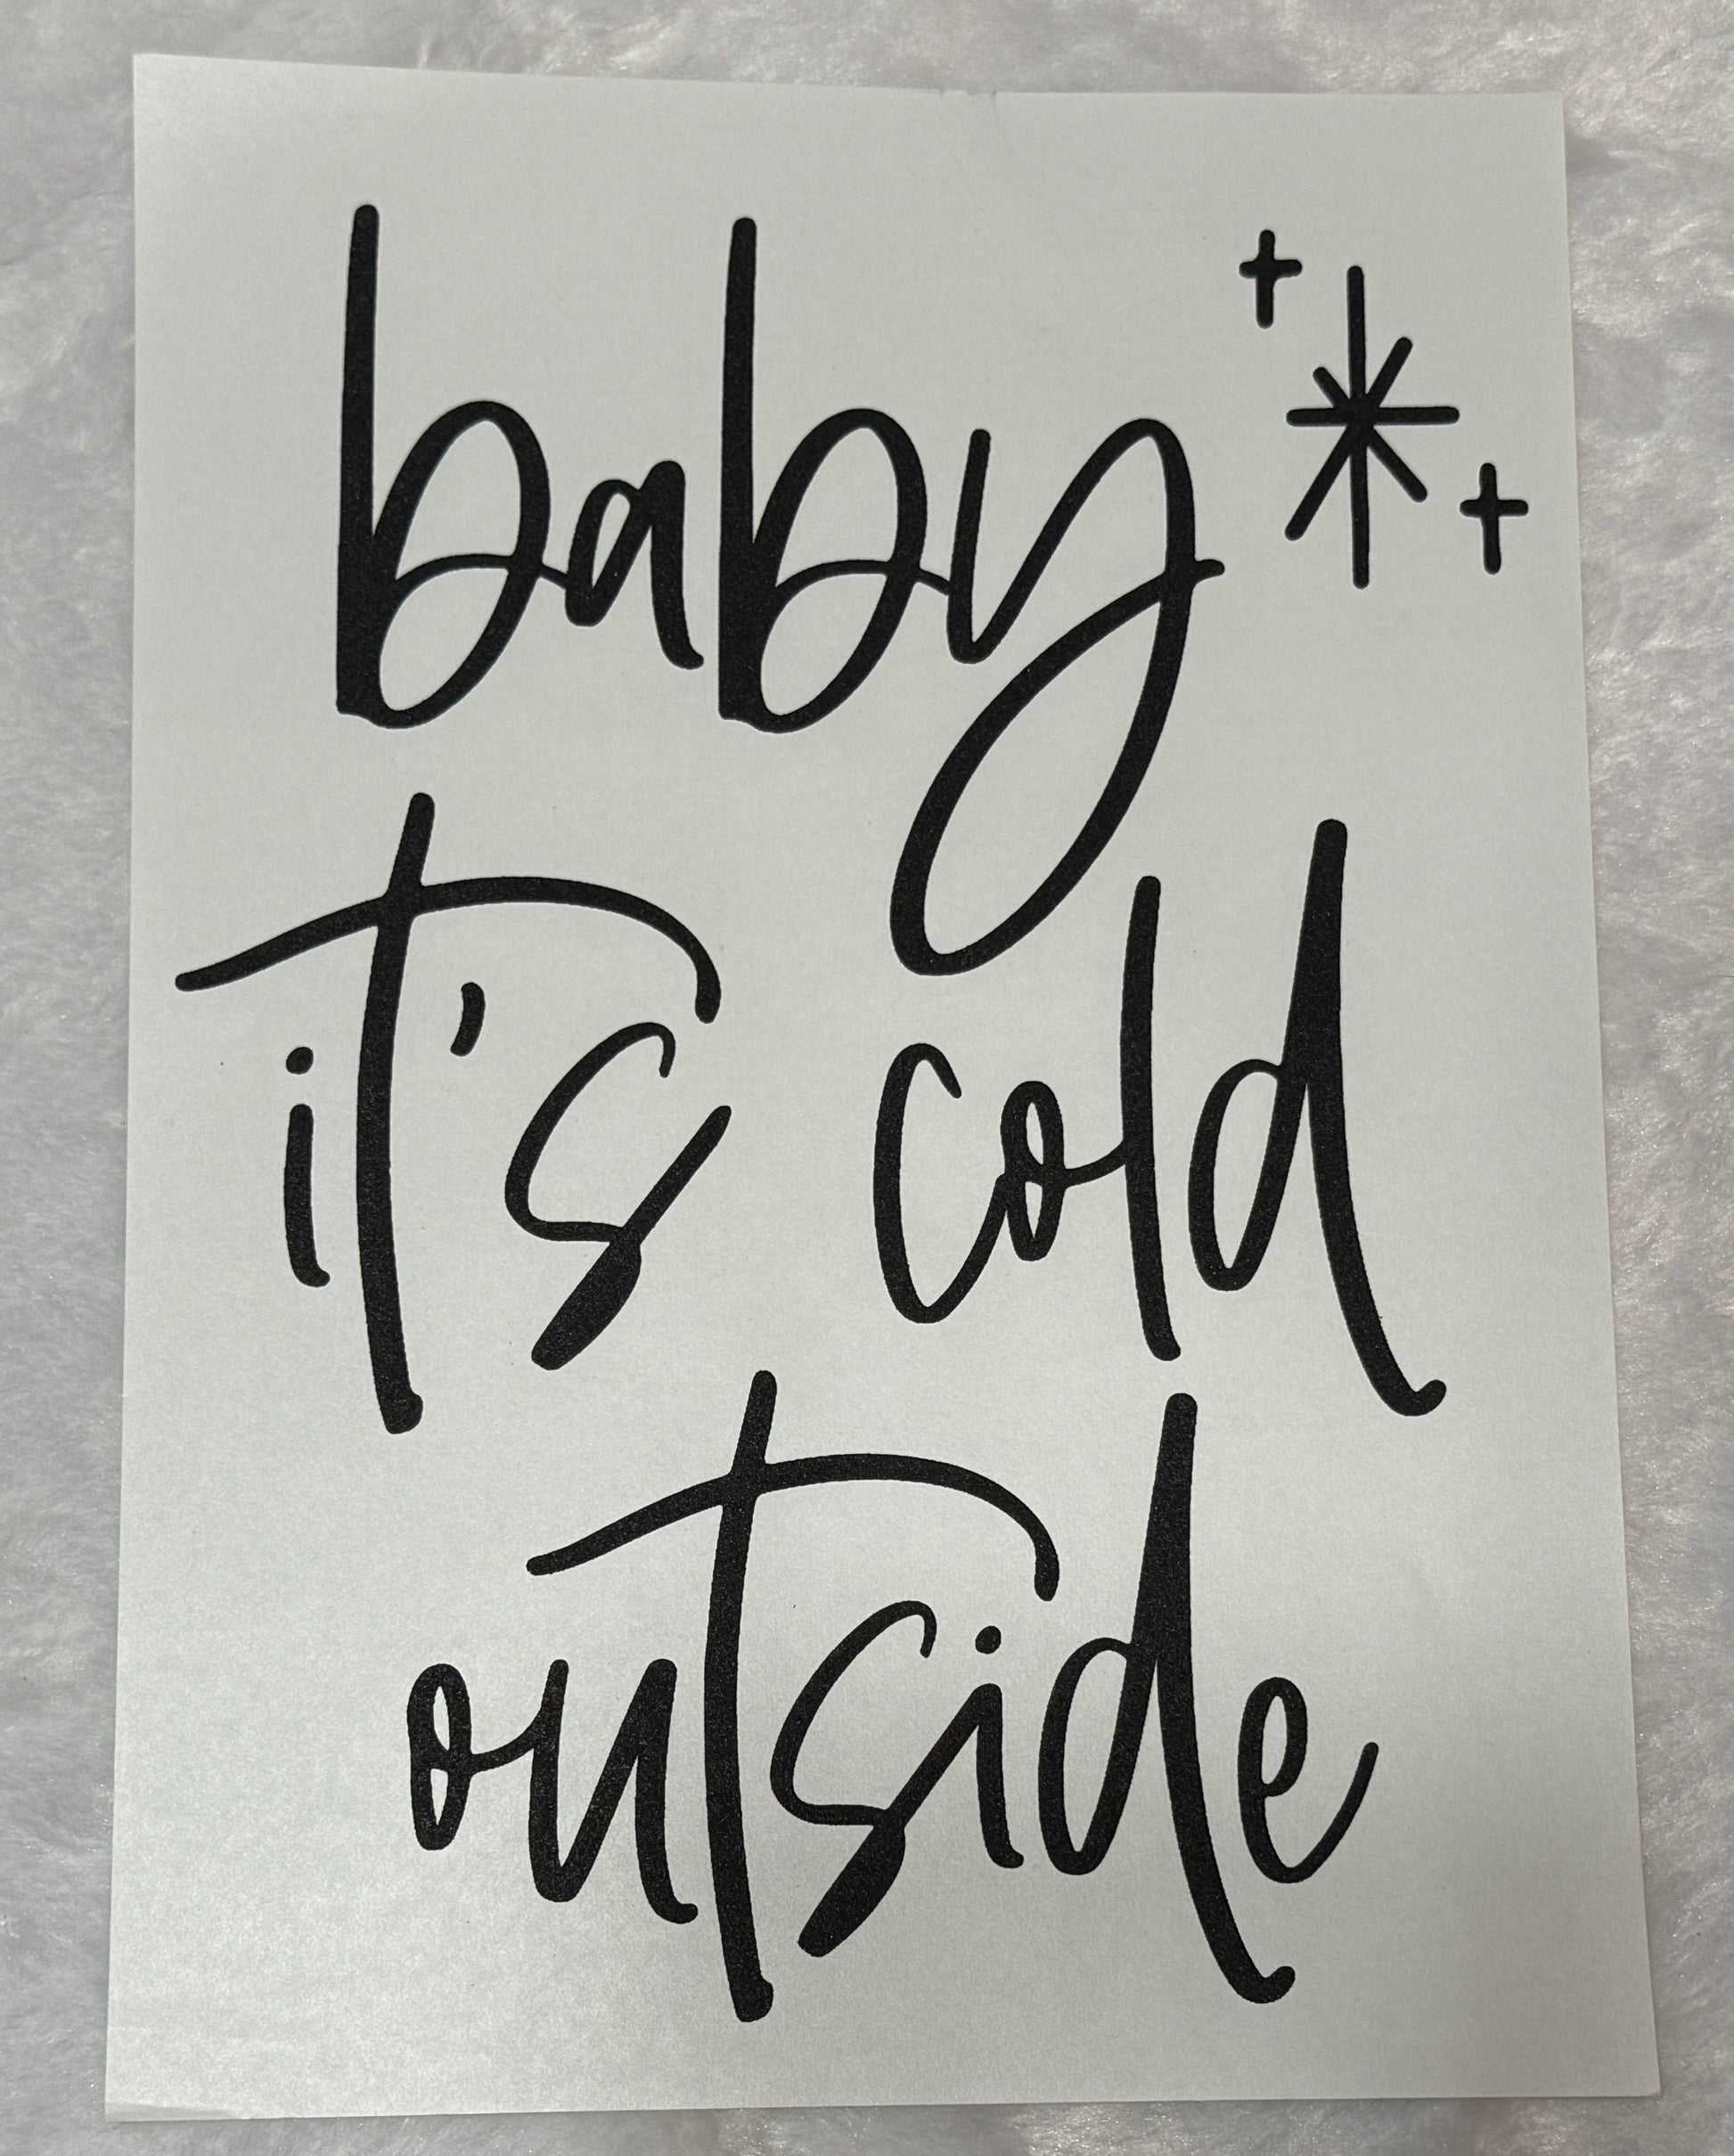 baby
it's cold
outside